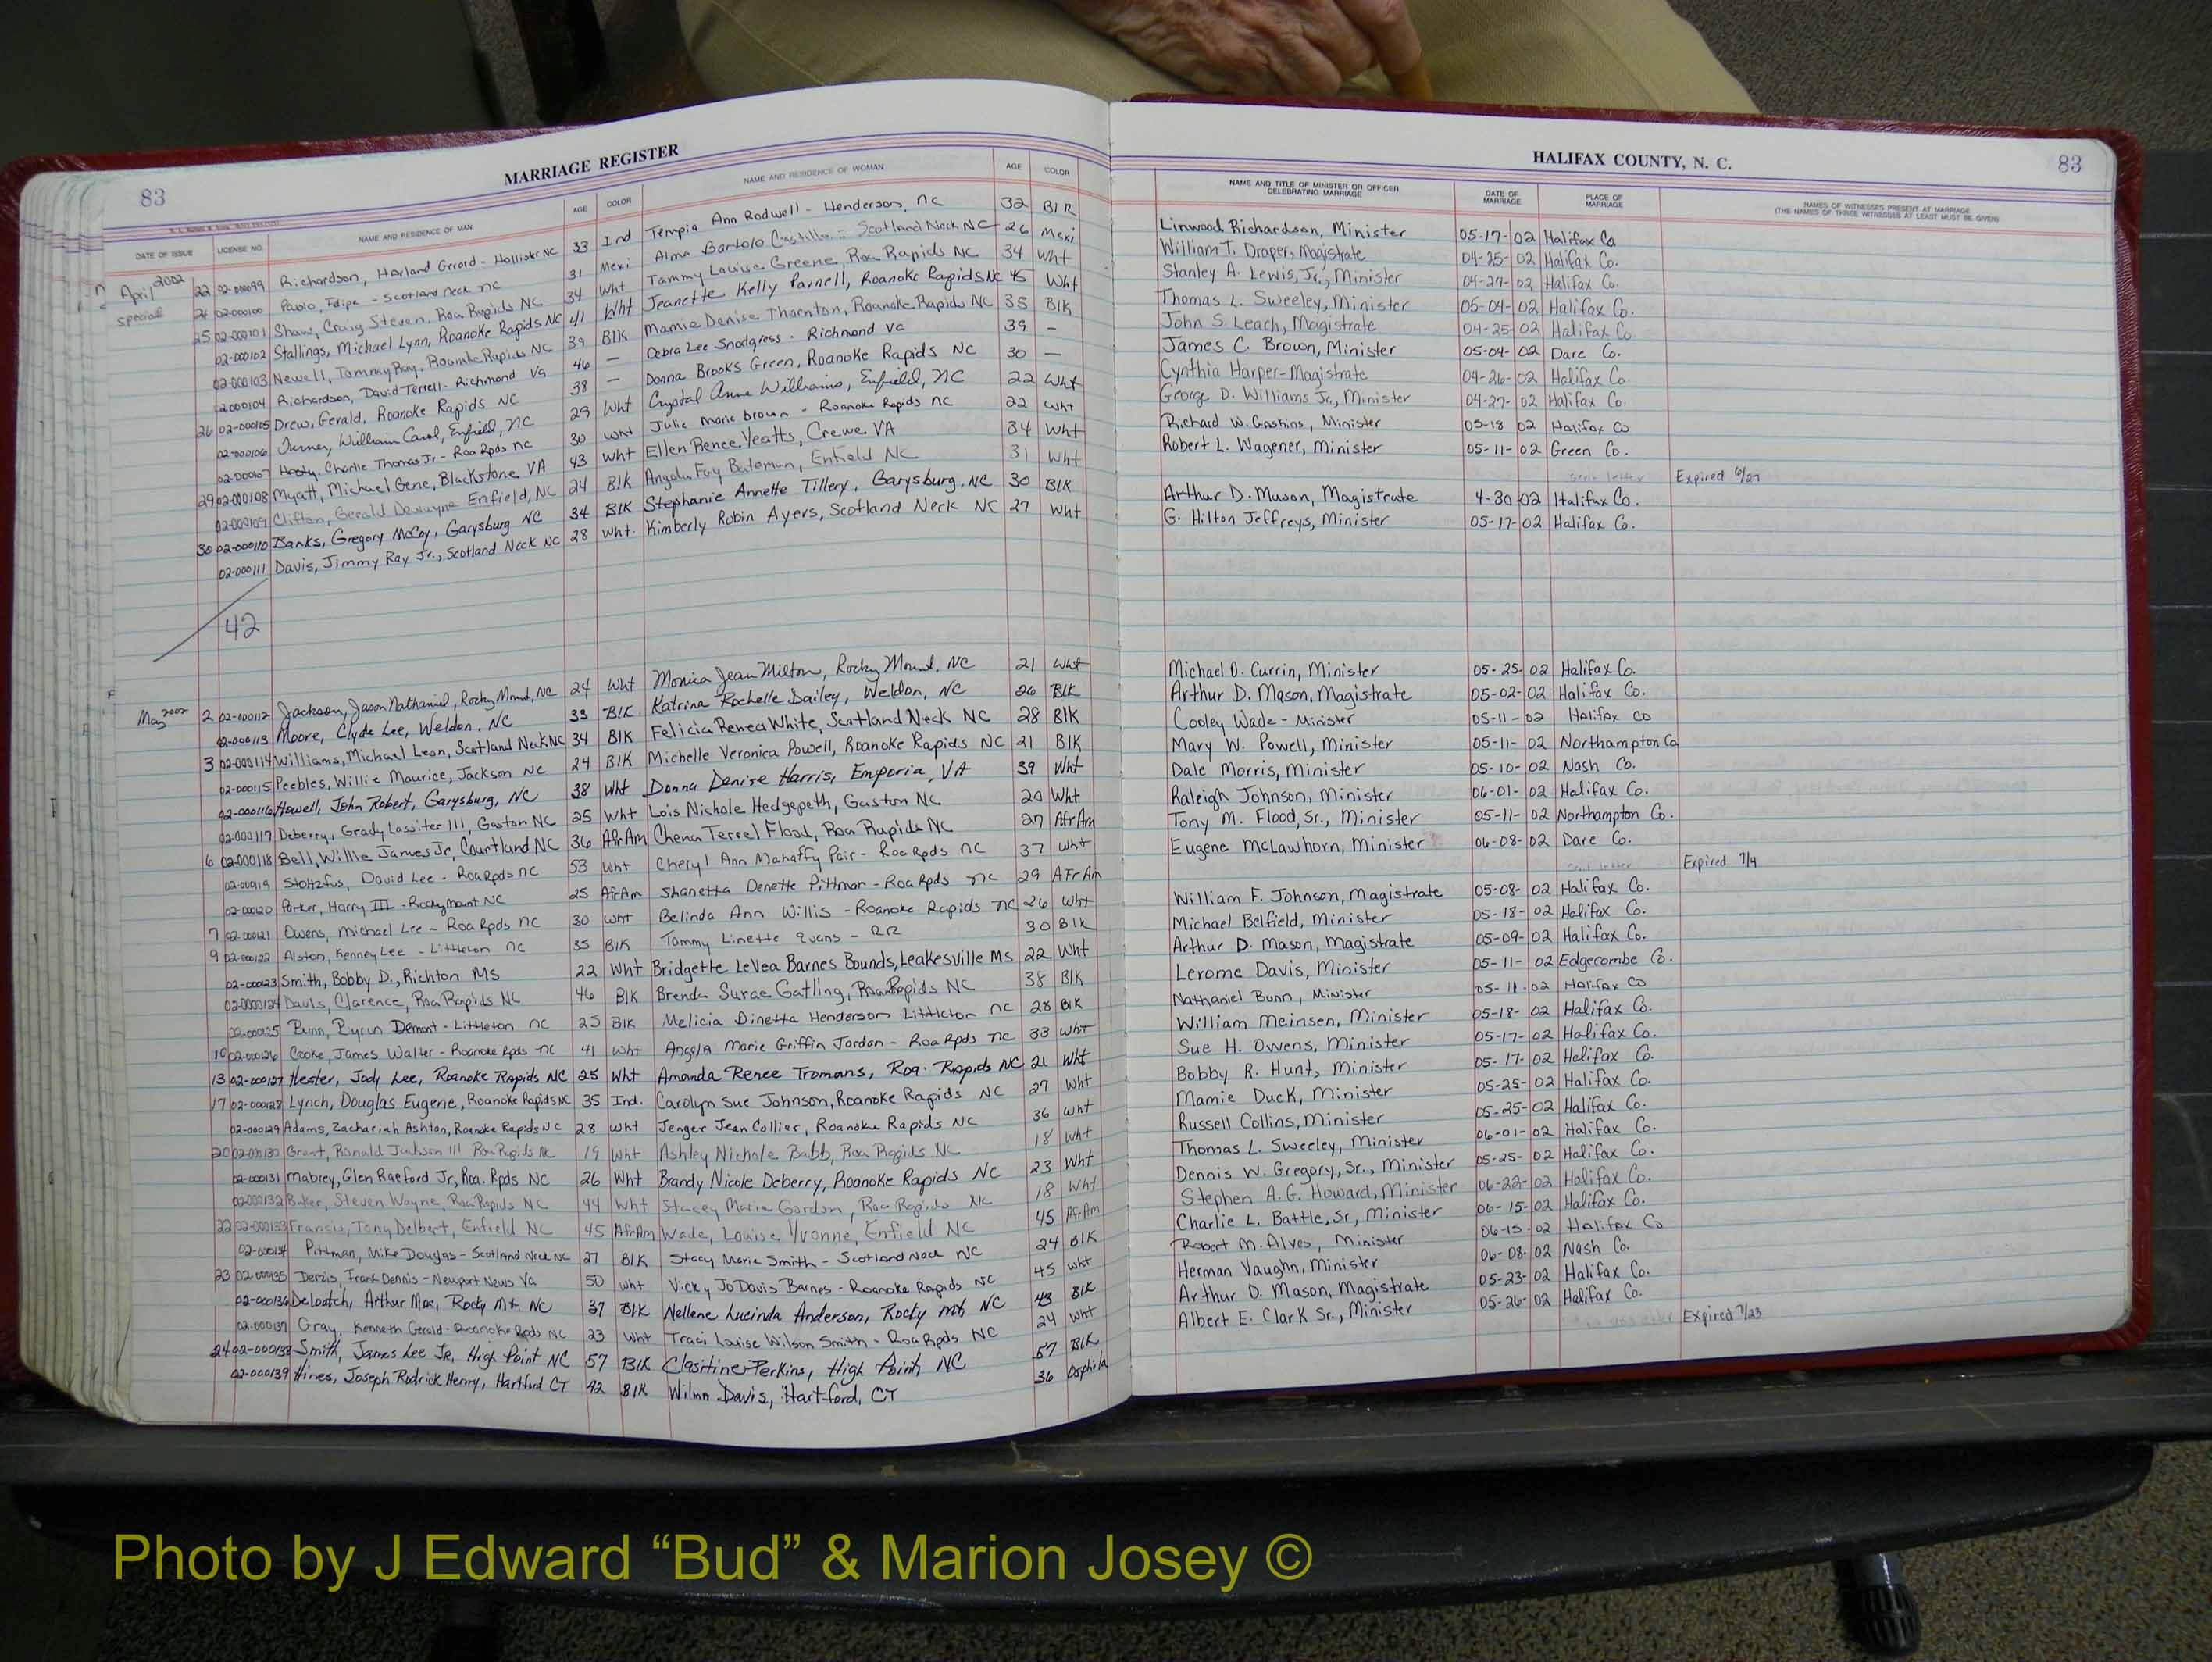 83 MARRIAGE REGISTER
DATE OF ISSUE LICENSE NO NAME AND RESIDENCE OF MAN AGE COLOR NAME AND RESIDENCE OF WOMAN AGE COLOR
April 2002 22 02-000099 Richardson, Harland Gerard - Hollister NC 33 Ind Tempia Ann Rodwell - Henderson, nc 32 Blk
special 24 02-000100 Pablo, Felipe - Scotland Neck nc 31 Mexi Alma Bartolo Castillo - Scotland Neck NC 26 Mexi
25 02-000101 Shaw, Craig Steven, Roa Rapids NC 34 Wht Tammy Louise Greene, Roa Rapids NC 34 Wht
02-000102 Stallings, Michael Lynn, Roanoke Rapids NC 41 Wht Jeanette Kelly Parnell, Roanoke Rapids NC 45 Wht
02-000103 Newell, Tommy Ray, Roanoke Rapids NC 39 Blk Mamie Denise Thornton, Roanoke Rapids NC 35 Blk
02-000104 Richardson, David Terrell - Richmond Va 46 — Debra Lee Snodgress - Richmond Va 39 -
26 02-000105 Drew, Gerald, Roanoke Rapids NC 38 — Donna Brooks Green, Roanoke Rapids NC 30 —
02-000106 Turner, William Carol, Enfield, NC 29 Wht Crystal Anne Williams, Enfield, NC 22 Wht
02-000107 Charlie Thomas Jr - Roa Rpds nc 30 Wht Julie Marie Brown - Roanoke Rapids nc 22 Wht
29 02-000108 Myatt, Michael Gene, Blackstone VA 43 Wht Ellen Renee Yeatts, Crewe VA 34 Wht
02-000109 Clifton, Gerald Dewayne Enfield, NC 24 Blk Angela Fay Bateman, Enfield NC 31 Wht
30 02-000110 Banks, Gregory McCoy, Garysburg NC 34 Blk Stephanie Annette Tillery, Garysburg, NC 30 Blk
02-000111 Davis, Jimmy Ray Jr., Scotland Neck NC 28 Wht. Kimberly Robin Ayers, Scotland Neck NC 27 Wht
42
May 2002 2 02-000112 Jackson, Jason Nathaniel, Rocky Mound, NC 24 Wht Monica Jean Milton, Rocky Mound, NC 21 Wht
02-000113 Moore, Clyde Lee, Weldon, NC 33 Blk Katrina Rochelle Dailey, Weldon, NC 26 Blk
3 02-000114 Williams, Michael Leon, Scotland Neck NC 34 Blk Felicia Renea White, Scotland Neck NC 28 Blk
02-000115 Peebles, Willie Maurice, Jackson NC 24 Blk Michelle Veronica Powell, Roanoke Rapids NC 21 Blk
02-000116 Howell, John Robert, Garysburg, NC 38 Wht Donna Denise Harris, Emporia, VA 39 Wht
02-000117 Deberry, Grady Lassiter III, Gaston NC 25 Wht Lois Nichole Hedgepeth, Gaston NC 20 Wht
6 02-000118 Bell, Willie James Jr, Courtland NC 36 AfrAm Chena Terrel Flood, Roa Rapids NC 27 AfrAm
02-000119 Stoltzfus, David Lee - Roa Rpds nc 53 Wht Cheryl Ann Mahaffy Pair - Roa Rpds nc 37 Wht
02-000120 Parker, Harry III - Rocky Mount NC 25 AfrAm Shanetta Denette Pittman - Roa Rpds nc 29 AFrAm
7 02-000121 Owens, Michael Lee - Roa Rpds nc 30 Wht Belinda Ann Willis - Roanoke Rapids nc 26 Wht
9 02-000122 Alston, Kenney Lee - Littleton nc 35 Blk Tammy Linette Evans - RR 30 Blk
02-000123 Smith, Bobby D., Richton MS 22 Wht Bridgette LeVea Barnes Bounds, Leakesville Ms 22 Wht
02-0000124 Davis, Clarence, Roa Rapids NC 46 Blk Brenda Surae Gatling, Roa Rapids NC 38 Blk
02-000125 Bunn, Byrun Demont - Littleton nc 25 Blk Melicia Dinetta Henderson Littleton nc 28 Blk
10 02-000126 Cooke, James Walter - Roanoke Rpds nc 41 Wht Angela Marie Griffin Jordan - Roa Rpds nc 33 Wht
13 02-000127 Hester, Jody Lee, Roanoke Rapids NC 25 Wht Amanda Renee Tromans, Roa. Rapids NC 21 Wht
17 02-000128 Lynch, Douglas Eugene, Roanoke Rapids NC 35 Ind. Carolyn Sue Johnson, Roanoke Rapids NC 27 Wht
02-000129 Adams, Zachariah Ashton, Roanoke Rapids NC 28 Wht Jenger Jean Collier, Roanoke Rapids NC 36 Wht
20 02-000130 Grant, Ronald Jackson III Roa Rapids NC 19 Wht Ashley Nichole Babb, Roa Rapids NC 18 Wht
02-000131 Mabrey, Glen Raeford Jr, Roa. Rpds NC 26 Wht Brandy Nicole Deberry, Roanoke Rapids NC 23 Wht
02-000132 Baker, Steven Wayne, Roa Rapids NC 44 Wht Stacey Marie Gordon, Roa Rapids NC 18 Wht
22 02-000133 Francis, Tony Delbert, Enfield NC 45 AfrAm Wade, Louise Yvonne, Enfield NC 45 AfrAm
02-000134 Pittman, Mike Douglas - Scotland Neck NC 27 Blk Stacy Marie Smith - Scotland Neck NC 24 Blk
23 02-000135 Frank Dennis - Newport News Va 50 Wht Vicky Jo Davis Barnes - Roanoke Rapids NC 45 Wht
02-000136 Deloatch, Arthur Mae, Rocky Mt. NC 37 Blk Nellene Lucinda Anderson, Rocky mt NC 43 Blk
02-000137 Gray, Kenneth Gerald - Roanoke Rpds NC 23 Wht Traci Louise Wilson Smith - Roa Rpds NC 24 Wht
24 02-000138 Smith, James Lee Jr, High Point NC 57 Blk Clasitine Perkins, High Point, NC 57 Blk
02-000139 Hines, Joseph Rodrick Henry, Hartford CT 42 Blk Wilma Davis, Hartford, CT 36
HALIFAX COUNTY, N. C. 83
NAME AND TITLE OF MINISTER OR OFFICER CELEBRATING MARRIAGE DATE OF MARRIAGE PLACE OF MARRIAGE NAMES OF WITNESSES PRESENT AT MARRIAGE
(THE NAMES OF THREE WITNESSES AT LEAST MUST BE GIVEN)
Linwood Richardson, Minister 05-17-02 Halifax Co
William T. Draper, Magistrate 04-25-02 Halifax Co.
Stanley A. Lewis, Jr., Minister 04-27-02 Halifax Co.
Thomas L. Sweeley, Minister 05-04-02 Halifax Co.
John S. Leach, Magistrate 04-25-02 Halifax Co
James C. Brown, Minister 05-04-02 Dare Co.
Cynthia Harper - Magistrate 04-26-02 Halifax Co.
George D. Williams Jr., Minister 04-27-02 Halifax Co.
Richard W. Gaskins, Minister 05-18 02 Halifax Co
Robert L. Wagener, Minister 05-11-02 Green Co.
sent letter Expired 6/27
Arthur D. Mason, Magistrate 4-30-02 Halifax Co.
G. Hilton Jeffreys, Minister 05-17-02 Halifax Co.
Michael D. Currin, Minister 05-25-02 Halifax Co.
Arthur D. Mason, Magistrate 05-02-02 Halifax Co.
Cooley Wade - Minister 05-11-02 Halifax Co
Mary W. Powell, Minister 05-11-02 Northampton Co
Dale Morris, Minister 05-10-02 Nash Co.
Raleigh Johnson, Minister 06-01-02 Halifax Co.
Tony M. Flood, Sr., Minister 05-11-02 Northampton Co.
Eugene McLawhorn, Minister 06-08-02 Dare Co.
sent letter Expired 7/9
William F. Johnson, Magistrate 05-08-02 Halifax Co.
Michael Belfield, Minister 05-18-02 Halifax Co.
Arthur D. Mason, Magistrate 05-09-02 Halifax Co.
Lerome Davis, Minister 05-11-02 Edgecombe Co.
Nathaniel Bunn, Minister 05-11-02 Halifax Co
William Meinsen, Minister 05-18-02 Halifax Co.
Sue H. Owens, Minister 05-17-02 Halifax Co.
Bobby R. Hunt, Minister 05-17-02 Halifax Co.
Mamie Duck, Minister 05-25-02 Halifax Co.
Russell Collins, Minister 05-25-02 Halifax Co.
Thomas L. Sweeley, Minister 06-01-02 Halifax Co.
Dennis W. Gregory, Sr., Minister 05-25-02 Halifax Co.
Stephen A. G. Howard, Minister 06-22-02 Halifax Co.
Charlie L. Battle, Sr, Minister 06-15-02 Halifax Co.
Robert M. Alves, Minister 06-15-02 Halifax Co
Herman Vaughn, Minister 06-08-02 Nash Co.
Arthur D. Mason, Magistrate 05-23-02 Halifax Co.
Albert E. Clark Sr., Minister 05-26-02 Halifax Co.
Expired 7/23
Photo by J Edward “Bud” & Marion Josey ©